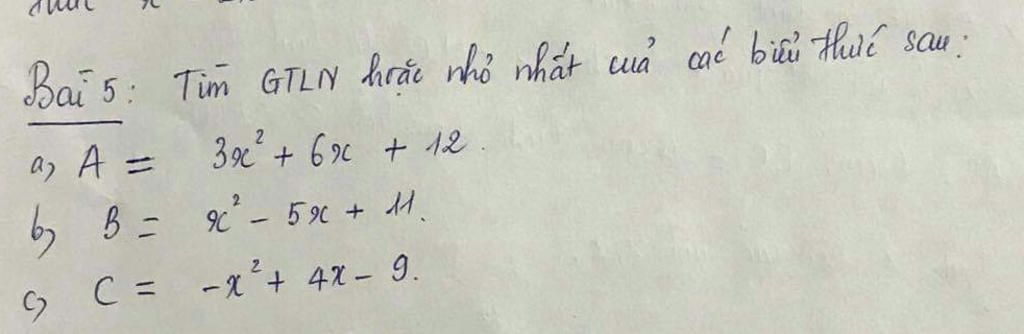 Bài 5: Tìm GTLN hoặc nhỏ nhất của các biểu thức sau:
a, A = 3x² + 6x + 12.
b, B = x² - 5x + 11.
c, C = -x² + 4x - 9.